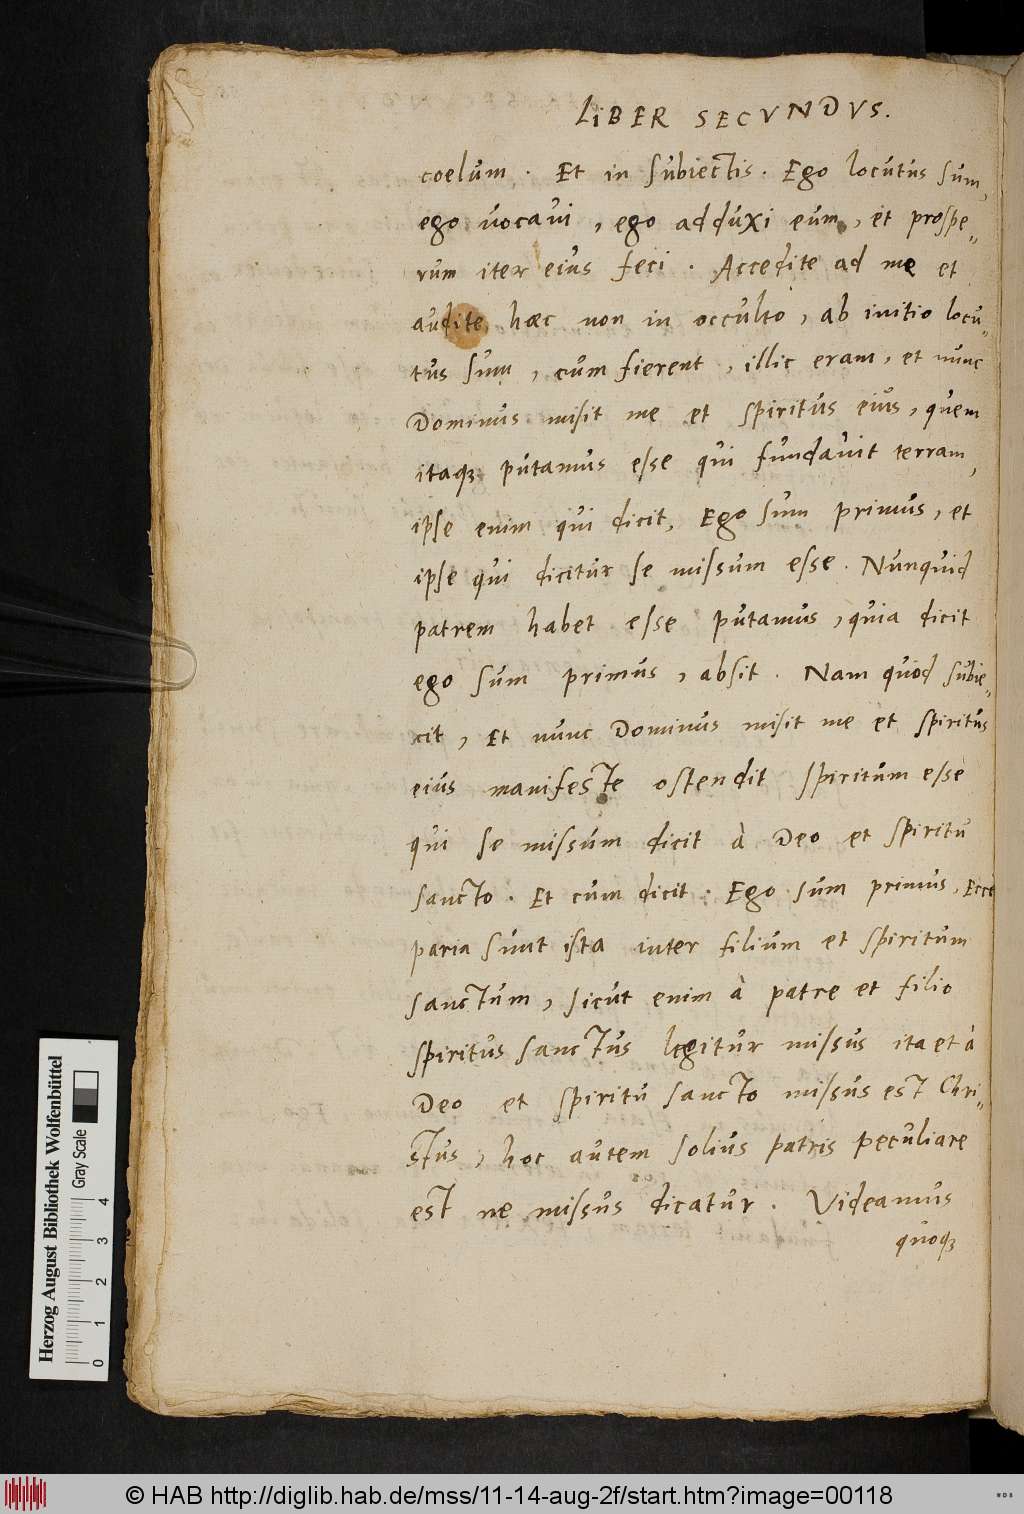 LIBER SECVNDVS.
coelum. Et in subiectis. Ego locutus sum,
ego vocavi, ego adduxi eum, et prospe„
rum iter eius feci. Accedite ad me et
audite haec non in occulto, ab initio locu„
tus sum, cum fierent, illic eram, et nunc
Dominus misit me et spiritus eius, quem
itaqꝫ putamus esse qui fundavit terram,
ipse enim qui dicit, Ego sum primus, et
ipse qui dicitur se missum esse. Nunquid
patrem habet esse putamus, quia dicit
ego sum primus, absit. Nam quod subie„
cit, Et nunc Dominus misit me et spiritus
eius manifeste ostendit spiritum esse
qui se missum dicit à Deo et spiritu
sancto. Et cum dicit: Ego sum primus, Ecce
paria sunt ista inter filium et spiritum
sanctum, sicut enim à patre et filio
spiritus sanctus legitur missus ita et à
Deo et spiritu sancto missus est Chri„
stus, hoc autem solius patris peculiare
est ne missus dicatur. Videamus
quoqꝫ
Herzog August Bibliothek Wolfenbüttel
Gray Scale
0 1 2 3 4
© HAB http://diglib.hab.de/mss/11-14-aug-2f/start.htm?image=00118